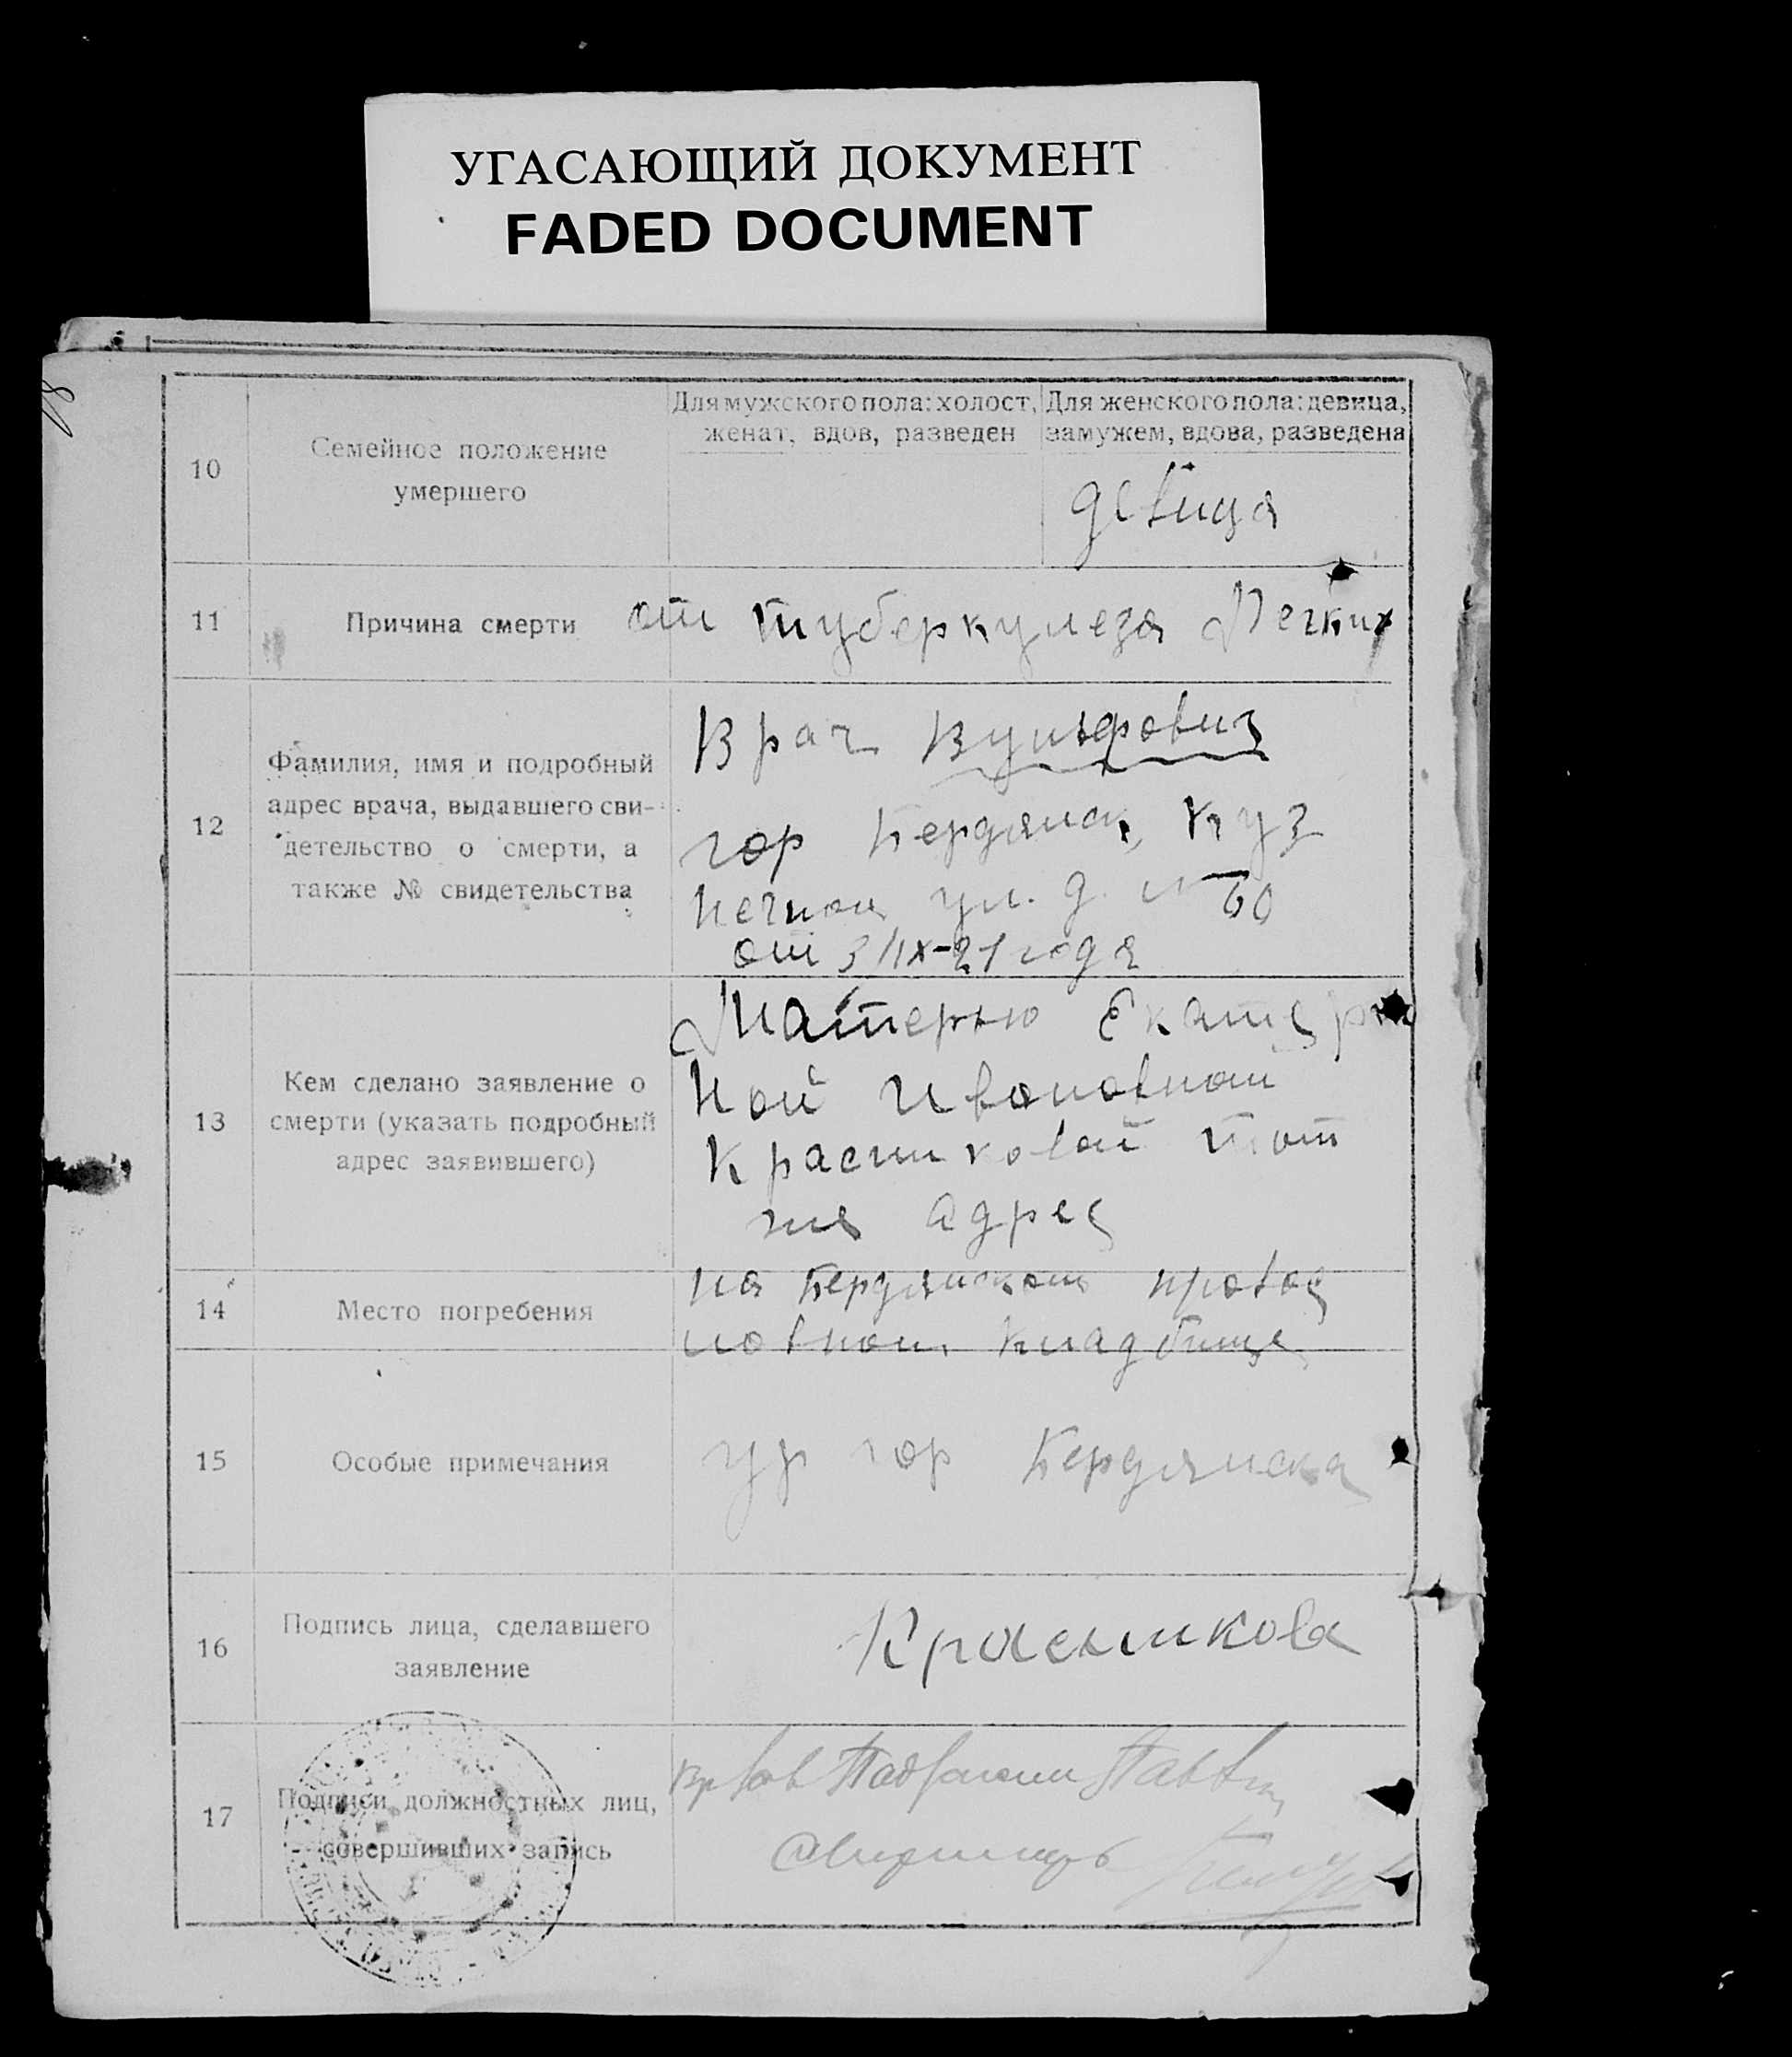 УГАСАЮЩИЙ ДОКУМЕНТ
FADED DOCUMENT
10
Семейное положение
умершего
Для мужского пола: холост,
женат, вдов, разведен
Для женского пола: девица,
замужем, вдова, разведена
девица
11
Причина смерти
от туберкулеза Легких
12
Фамилия, имя и подробный
адрес врача, выдавшего сви-
детельство о смерти, а
также № свидетельства
Врач Вульфович
гор Бердянск, Куз
нечная ул. д. № 60
от 3/IX-21 года
13
Кем сделано заявление о
смерти (указать подробный
адрес заявившего)
Матерью Екатери
ной Ивановной
Красниковой тот
же адрес
14
Место погребения
на Бердянском правос
лавном кладбище
15
Особые примечания
ур гор Бердянска
16
Подпись лица, сделавшего
заявление
Красникова
17
Подписи должностных лиц,
совершивших запись